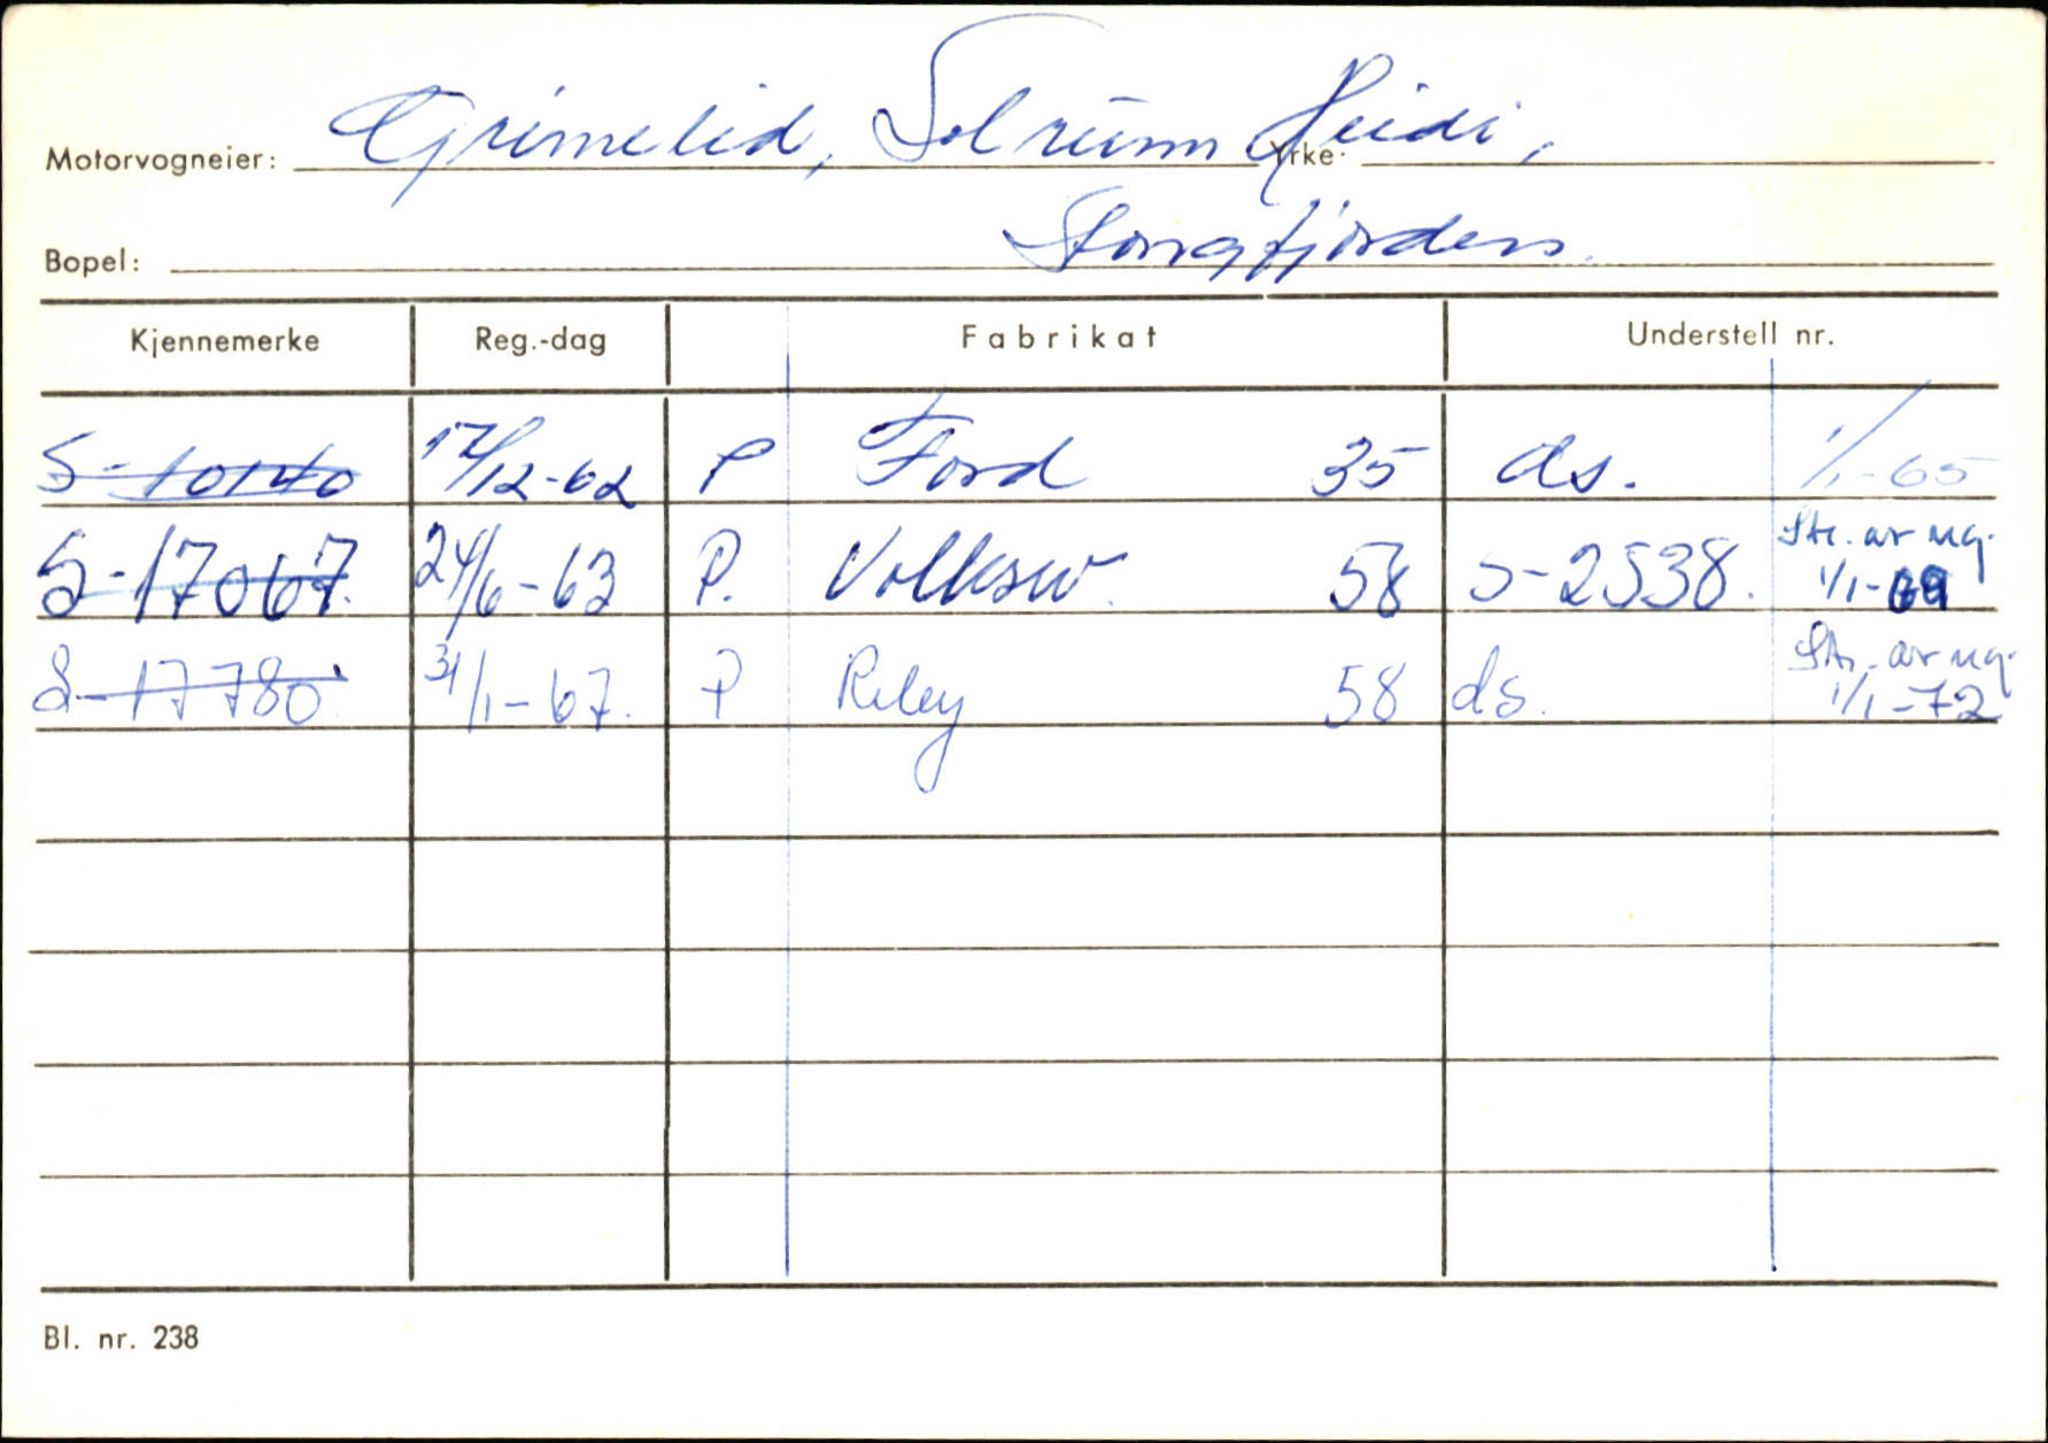 Motorvogneier: Grimelid, Solrunn Heidi, Yrke:
Bopel: Stongfjorden.
Kjennemerke Reg.-dag Fabrikat Understell nr.
S-10140 17/12-62 P Ford 35 ds. 1/1-65
S-17067 24/6-63 P. Volksw. 58 S-2538. Str. av reg. 1/1-69
S-17780 31/1-67. P Riley 58 ds. Str. av reg. 1/1-72
Bl. nr. 238